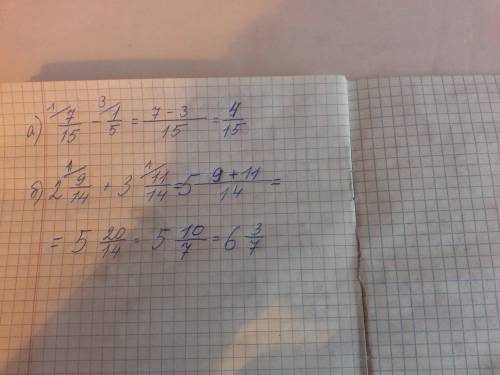 а) ¹⁄ 7/15 - ³⁄ 1/5 = (7 - 3)/15 = 4/15
б) 2 ¹⁄ 9/14 + 3 ¹⁄ 11/14 = 5 (9 + 11)/14 =
= 5 20/14 = 5 10/7 = 6 3/7